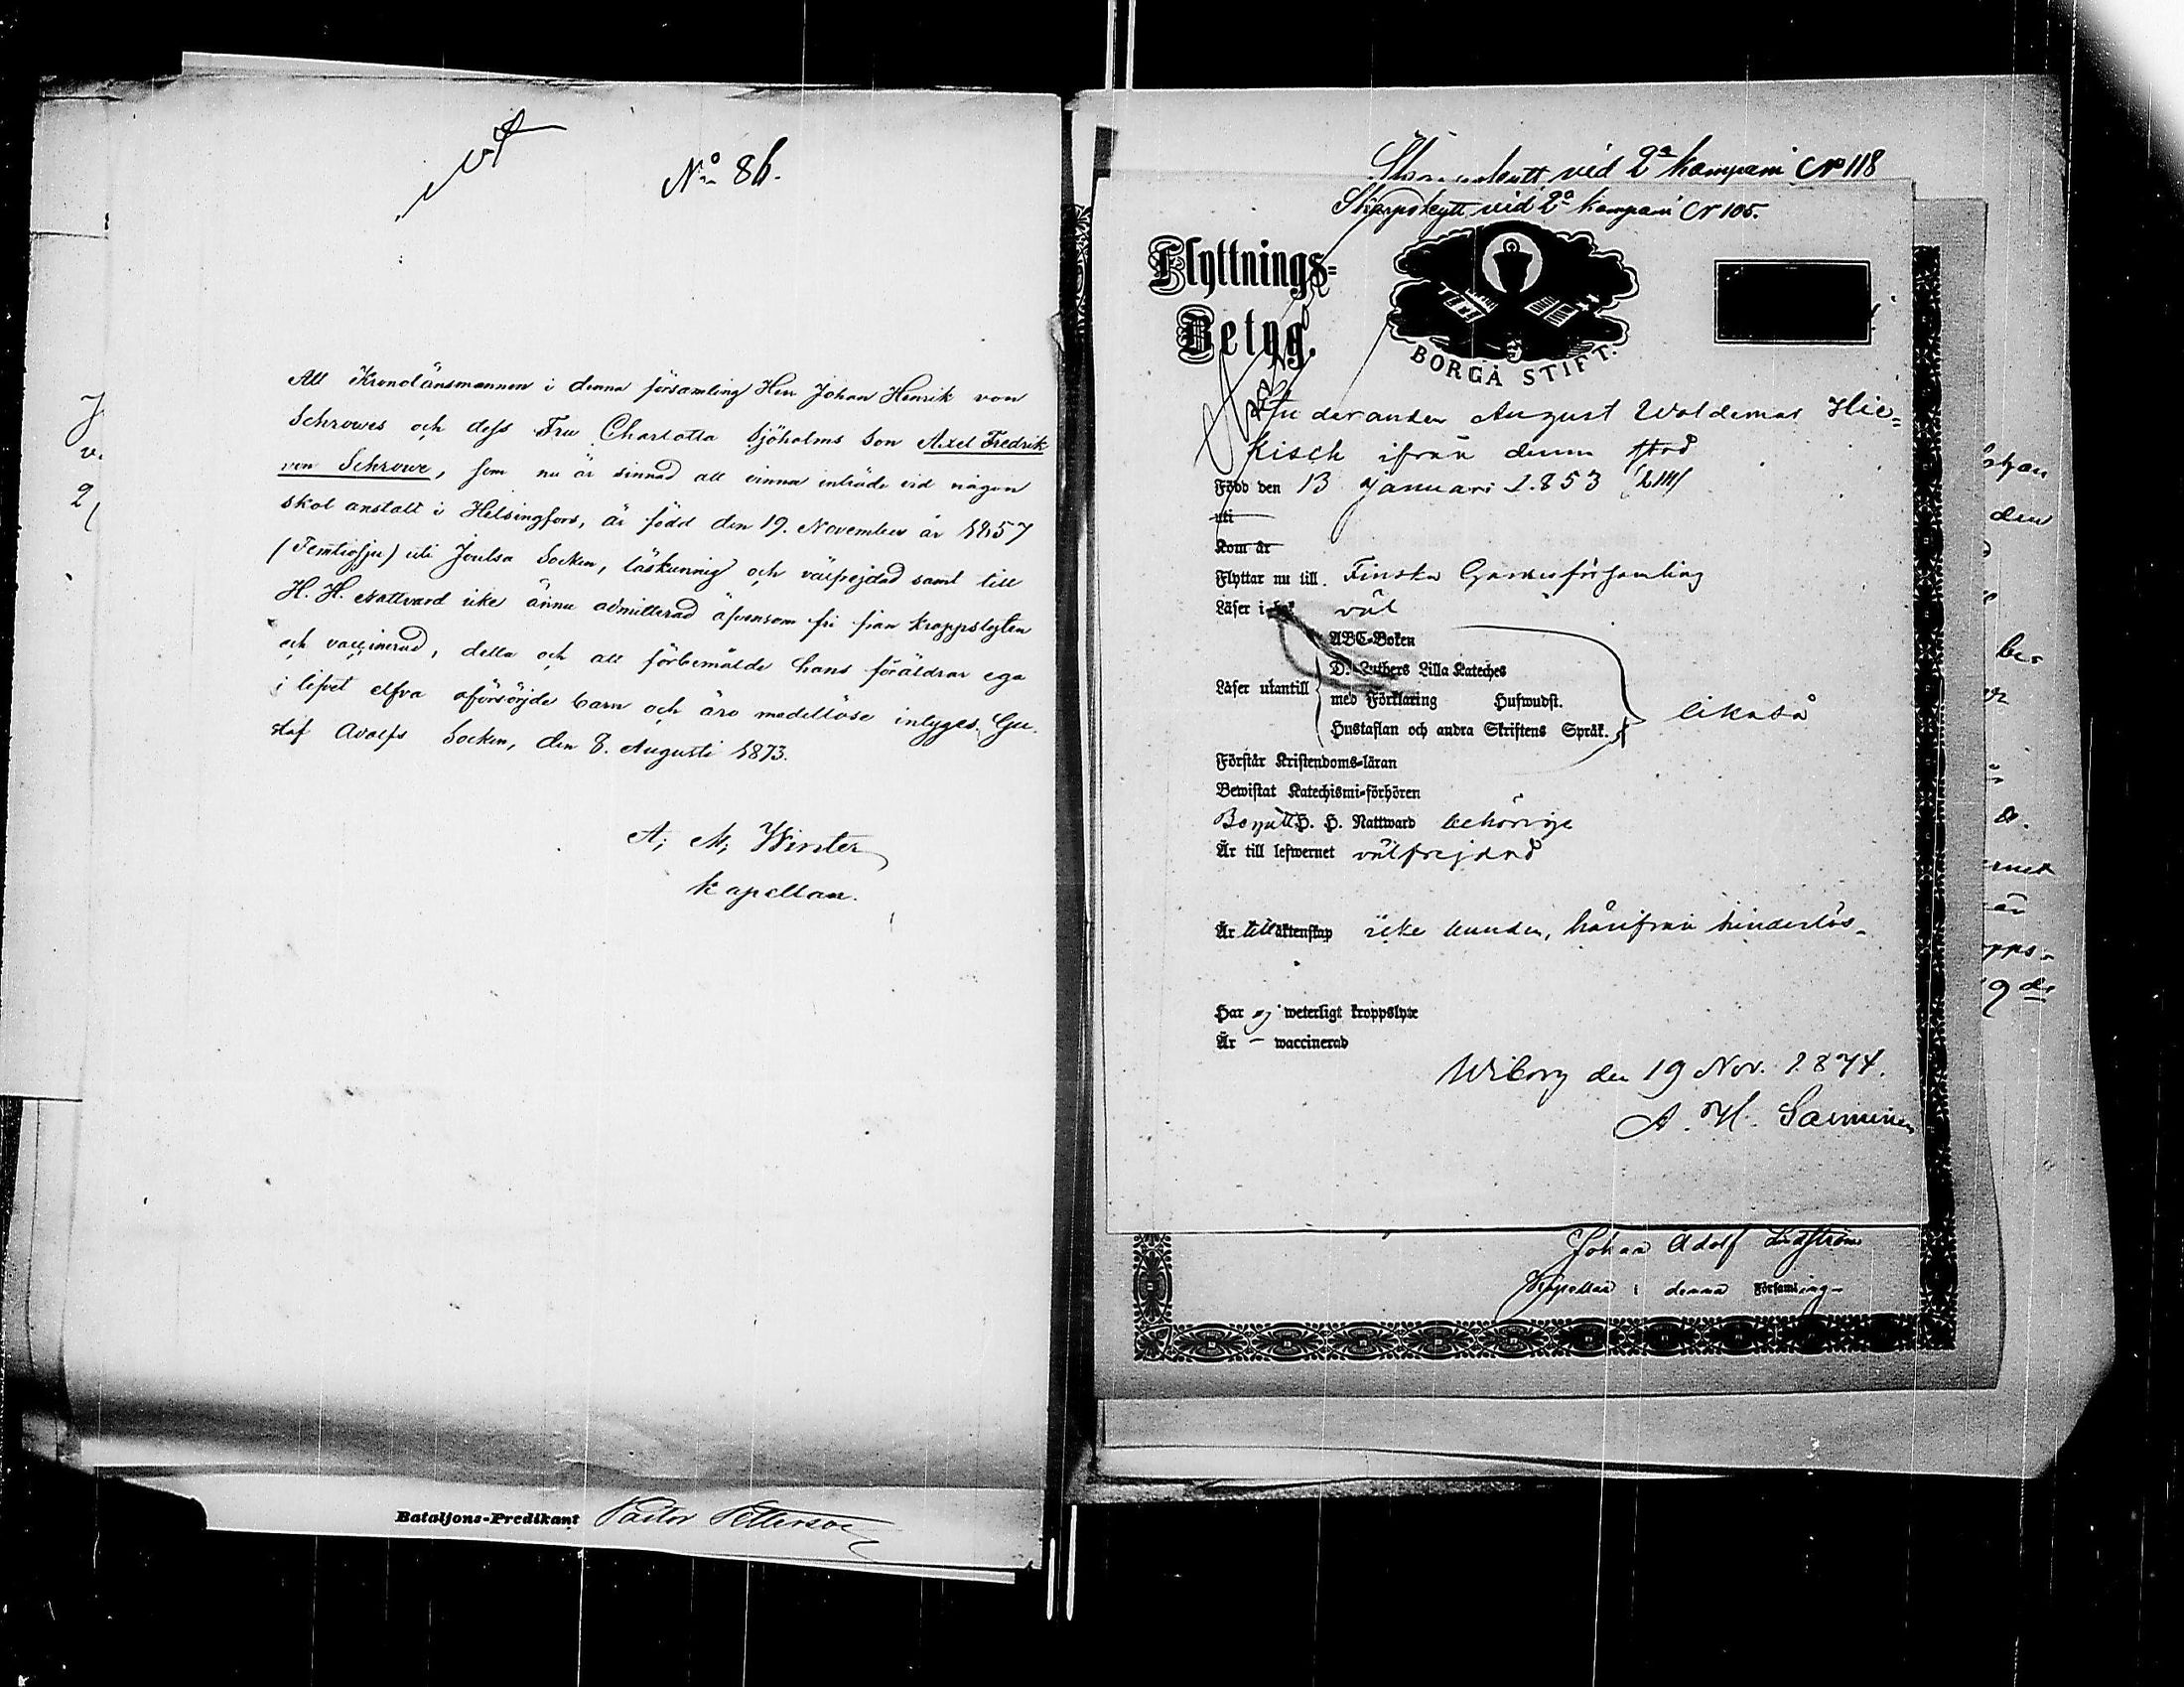 No 86.
Att Kronolänsmannen i denna församling Herr Johan Henrik von
Schrowes och dess Fru Charlotta Sjöholms Son Axel Fredrik
von Schrowe, som nu är sinnad att vinna inträde vid någon
skol anstalt i Helsingfors, är född den 19. November år 1857
(Femtiosju) uti Joutsa Socken, läskunnig och välfrejdad samt till
H. H. Nattvard icke ännu admitterad äfvensom fri från kroppslyten
och vaccinerad, detta och att förbemälde hans föräldrar ega
i lifvet elfva oförsörjde barn och äro medellöse intygas. Gu-
staf Adolfs Socken, den 8. Augusti 1873.
A. M. Winter
Kapellan.
Bataljons-Predikant Pastor Petterson
vid 2a Kompani No 118
Skarpskytt vid 2a Kompani N 105.
Flyttnings-
Betyg.
BORGÅ STIFT.
August Woldemar Hie-
kisch ifrån denna stad
Född den 13 Januari 1853
uti
Kom år
Flyttar nu till Finska Gardesförsamling
Läser i bok väl
ABC-Boken
D. Luthers Lilla Kateches
Läser utantill
med Förklaring Hufwudst.
Hustaflan och andra Skriftens Språk.
likaså
Förstår Kristendoms-läran
Bewistat Katechismi-förhören
Begått H. H. Nattward behörige
Är till lefwernet välfrejdad
Är till äktenskap icke bunden, härifrån hinderlös
Har ej weterligt kroppslyte
Är - waccinerad
Wiborg den 19 Nov. 1874.
A. H. Sarminen
Johan Adolf Lindström
Kapellan i denna Församling